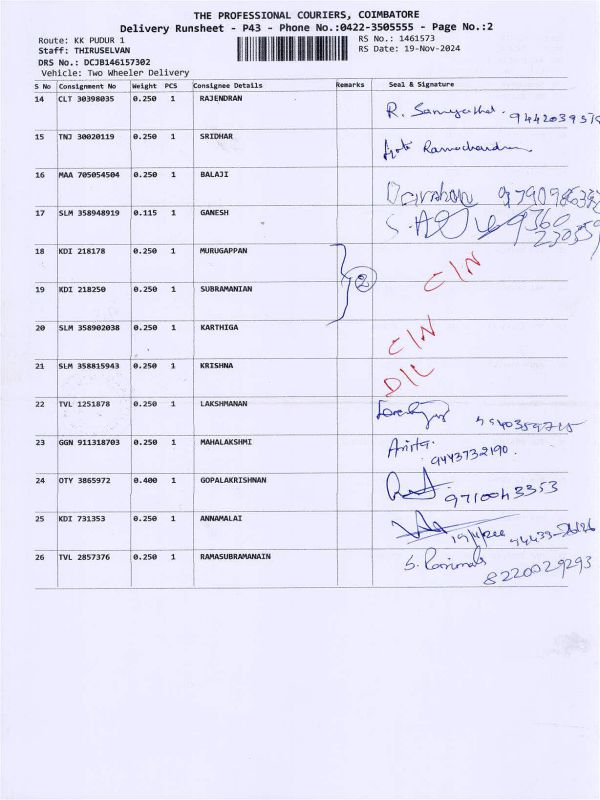 THE PROFESSIONAL COURIERS, COIMBATORE
Delivery Runsheet - P43 - Phone No.:0422-3505555 - Page No.:2
Route: KK PUDUR 1
RS No.: 1461573
Staff: THIRUSELVAN
RS Date: 19-Nov-2024
DRS No.: DCJB146157302
Vehicle: Two Wheeler Delivery
S No Consignment No Weight PCS Consignee Details Remarks Seal & Signature
14 CLT 30398035 0.250 1 RAJENDRAN
15 TNJ 30020119 0.250 1 SRIDHAR Ramachandran
16 MAA 705054504 0.250 1 BALAJI
17 SLM 358948919 0.115 1 GANESH
18 KDI 218178 0.250 1 MURUGAPPAN C/N
19 KDI 218250 0.250 1 SUBRAMANIAN 2
20 SLM 358902038 0.250 1 KARTHIGA C/N
21 SLM 358815943 0.250 1 KRISHNA D/L
22 TVL 1251878 0.250 1 LAKSHMANAN
23 GGN 911318703 0.250 1 MAHALAKSHMI Anita. 9443732190.
24 OTY 3865972 0.400 1 GOPALAKRISHNAN 9710043353
25 KDI 731353 0.250 1 ANNAMALAI
26 TVL 2857376 0.250 1 RAMASUBRAMANAIN 8220029293